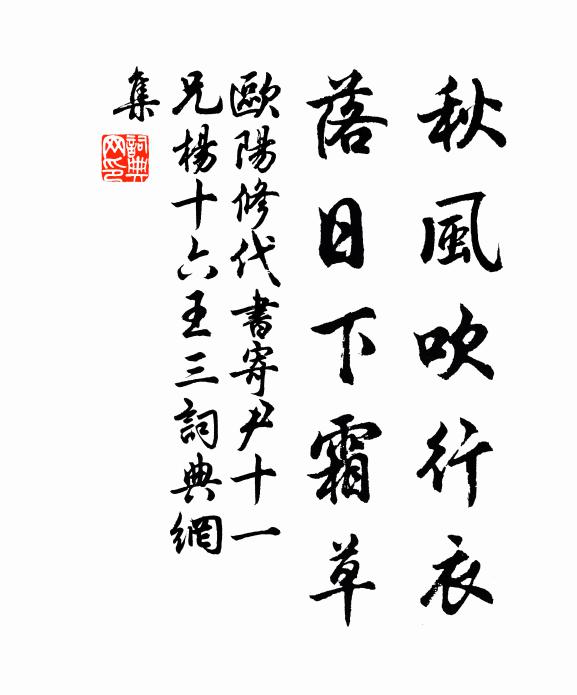 秋風吹行衣
落日下霜草
歐陽修代書寄尹十一
兄楊十六王三詞典網
集
詞典
网印